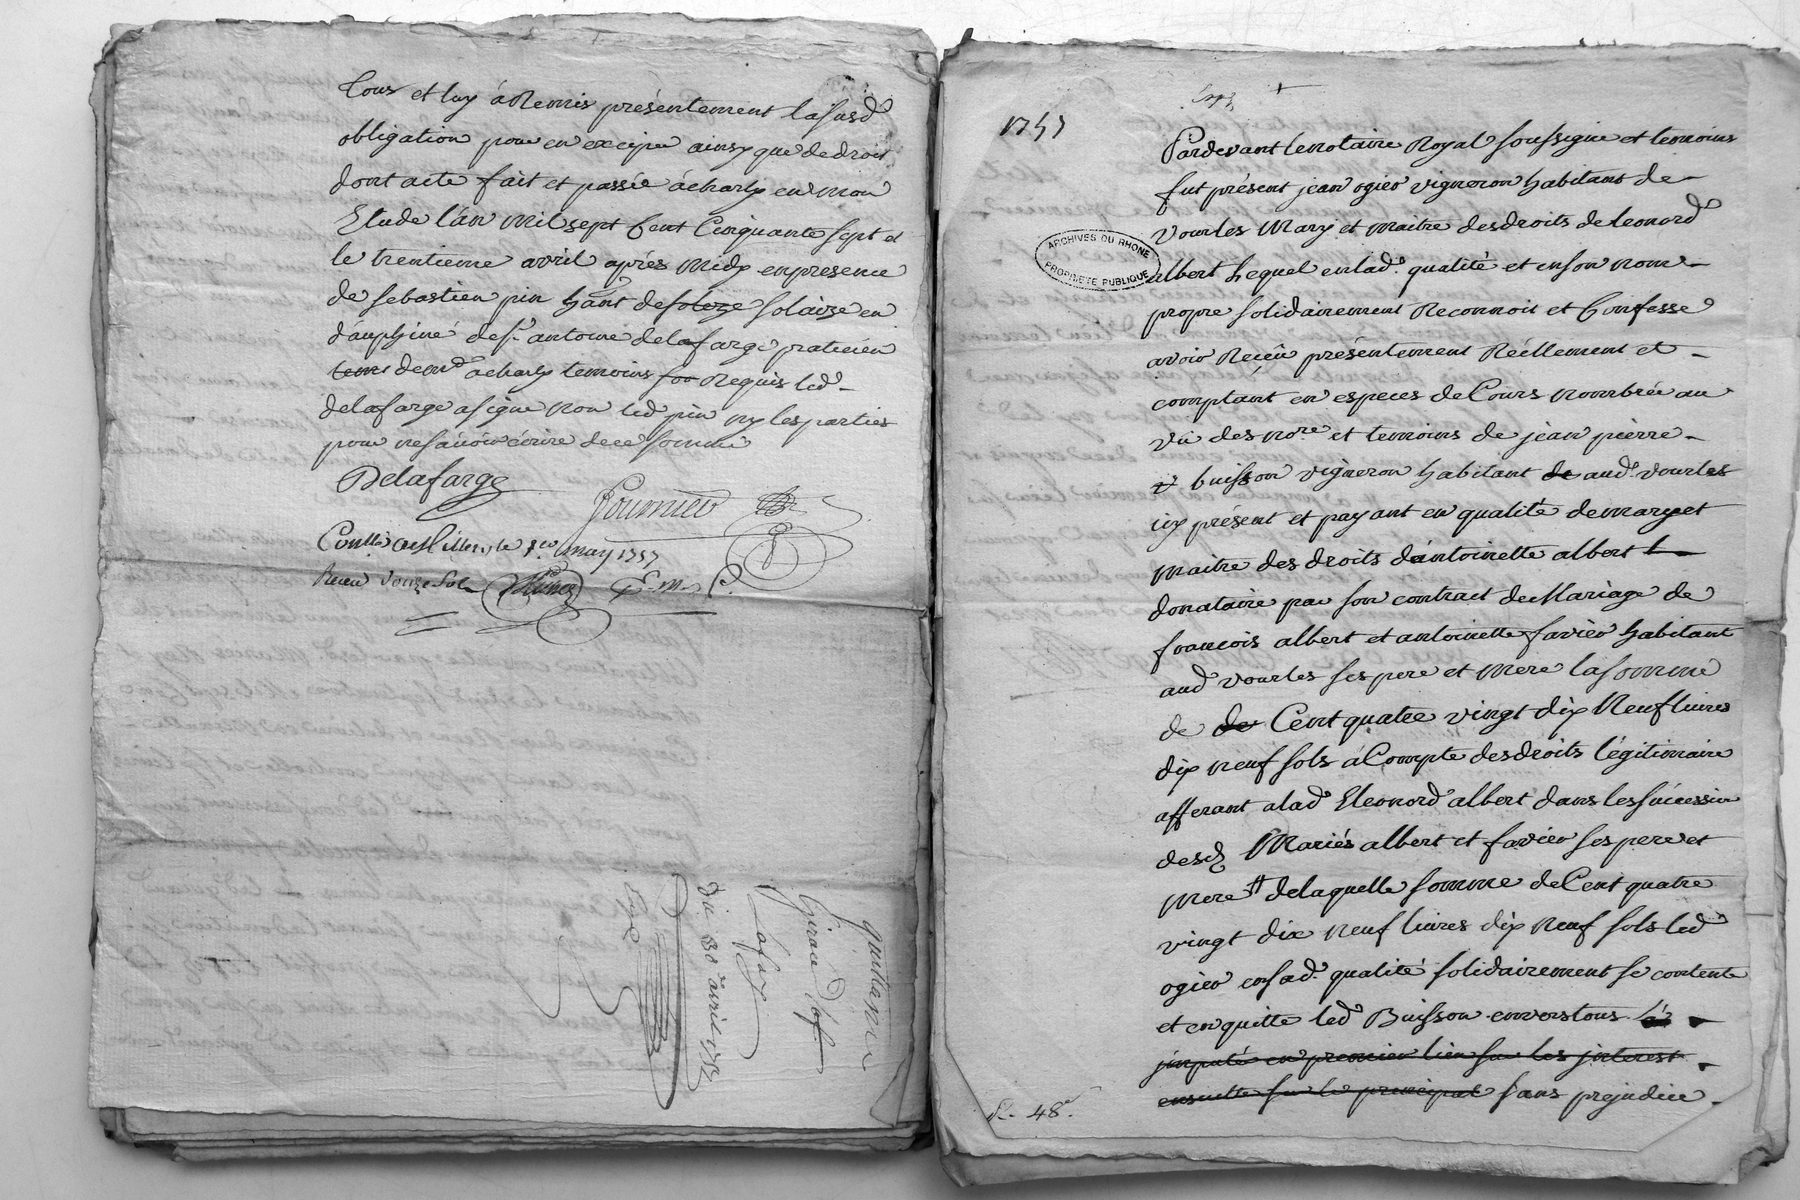 tous et luy á Remis présentement la susd
obligation pour en exciper ainsy que de droit
dont acte fait et passée á charly en mon
Etude l'an mil sept Cent Cinquante sept et
le trentieme avril aprés midy en presence
de sebastien pin hant de soleze solaize en
dauphiné de sr antoine delafarge praticien
demt a charly temoins Requis led
delafarge a signe non led pin ny les parties
pour ne sávoir écrire de ce sommé
Delafarge
Fournier
Conllé a Millery le 1er may 1757
Receu douze sols
quittance
Girau d
Lafay
du 30 avril 1757
1757
Pardevant le notaire Royal soussigne et temoins
fut présent jean ogier vigneron habitant de
vourles Mary et maitre des droits de leonord
ARCHIVES DU RHONE
PROPRIETE PUBLIQUE
albert Lequel en lad. qualité et en son nom
propre solidairement Reconnoit et Confesse
avoir Recëu présentement Réellement et
comptant en especes de Cours nombrée au
vü des nore et temoins de jean pierre
buisson vigneron habitant de aud. vourles
icy présent et payant en qualité de mary et
maitre des droits d'antoinette albert
donataire par son contract de Mariage de
francois albert et antoinette favier habitant
aud vourles ses pere et mere la somme
de de Cent quatre vingt dix Neuf livres
dix neuf sols á Compte des droits légitimaire
afferant a lad Eleonord albert dans les succession
desd Mariés albert et favier ses pere et
mere # de laquelle somme de Cent quatre
vingt dix neuf livres dix neuf sols led
ogier en sad. qualité solidairement se contente
et en quitte led Buisson envers tous
jmputé en premier lieu sur les jnterest
ensuitte sur le principal sans prejudice
48